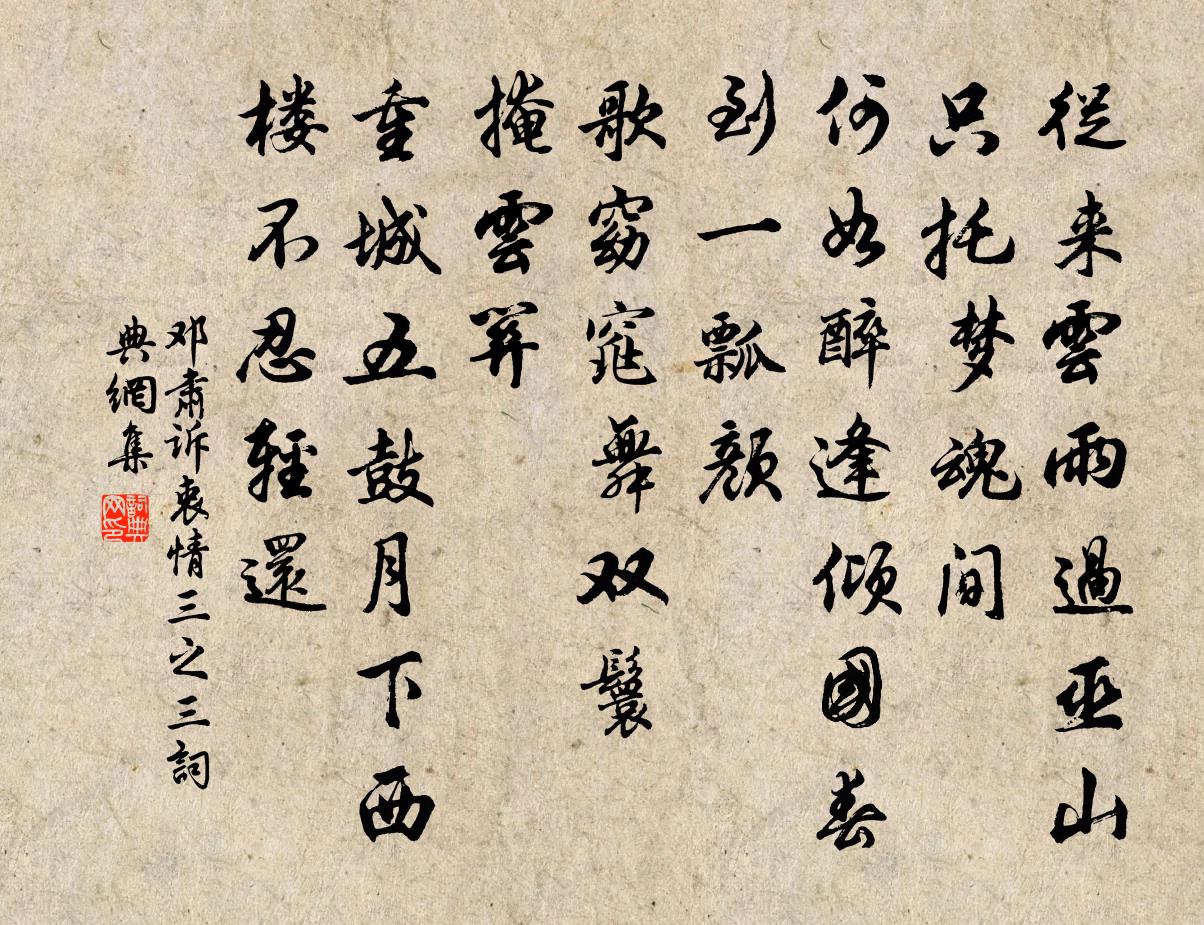 從来雲雨過巫山
只托梦魂间
何如醉逢倾國春
到一瓢颜
歌窈窕舞双鬟
掩雲關
重城五鼓月下西
楼不忍輕還
邓肃诉衷情三之三詞
典網集
詞典網印